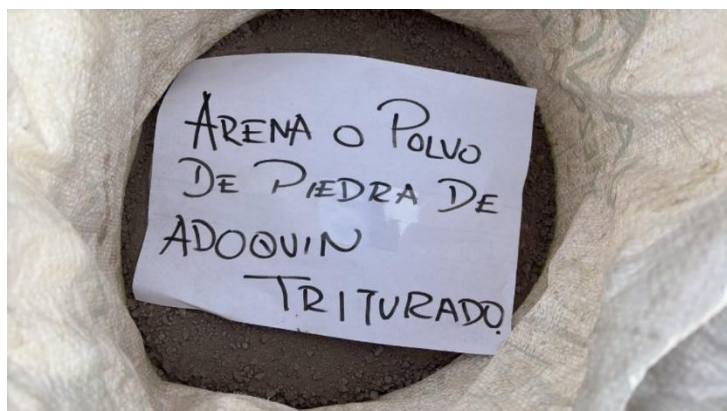 ARENA O POLVO
DE PIEDRA DE
ADOQUIN
TRITURADO.